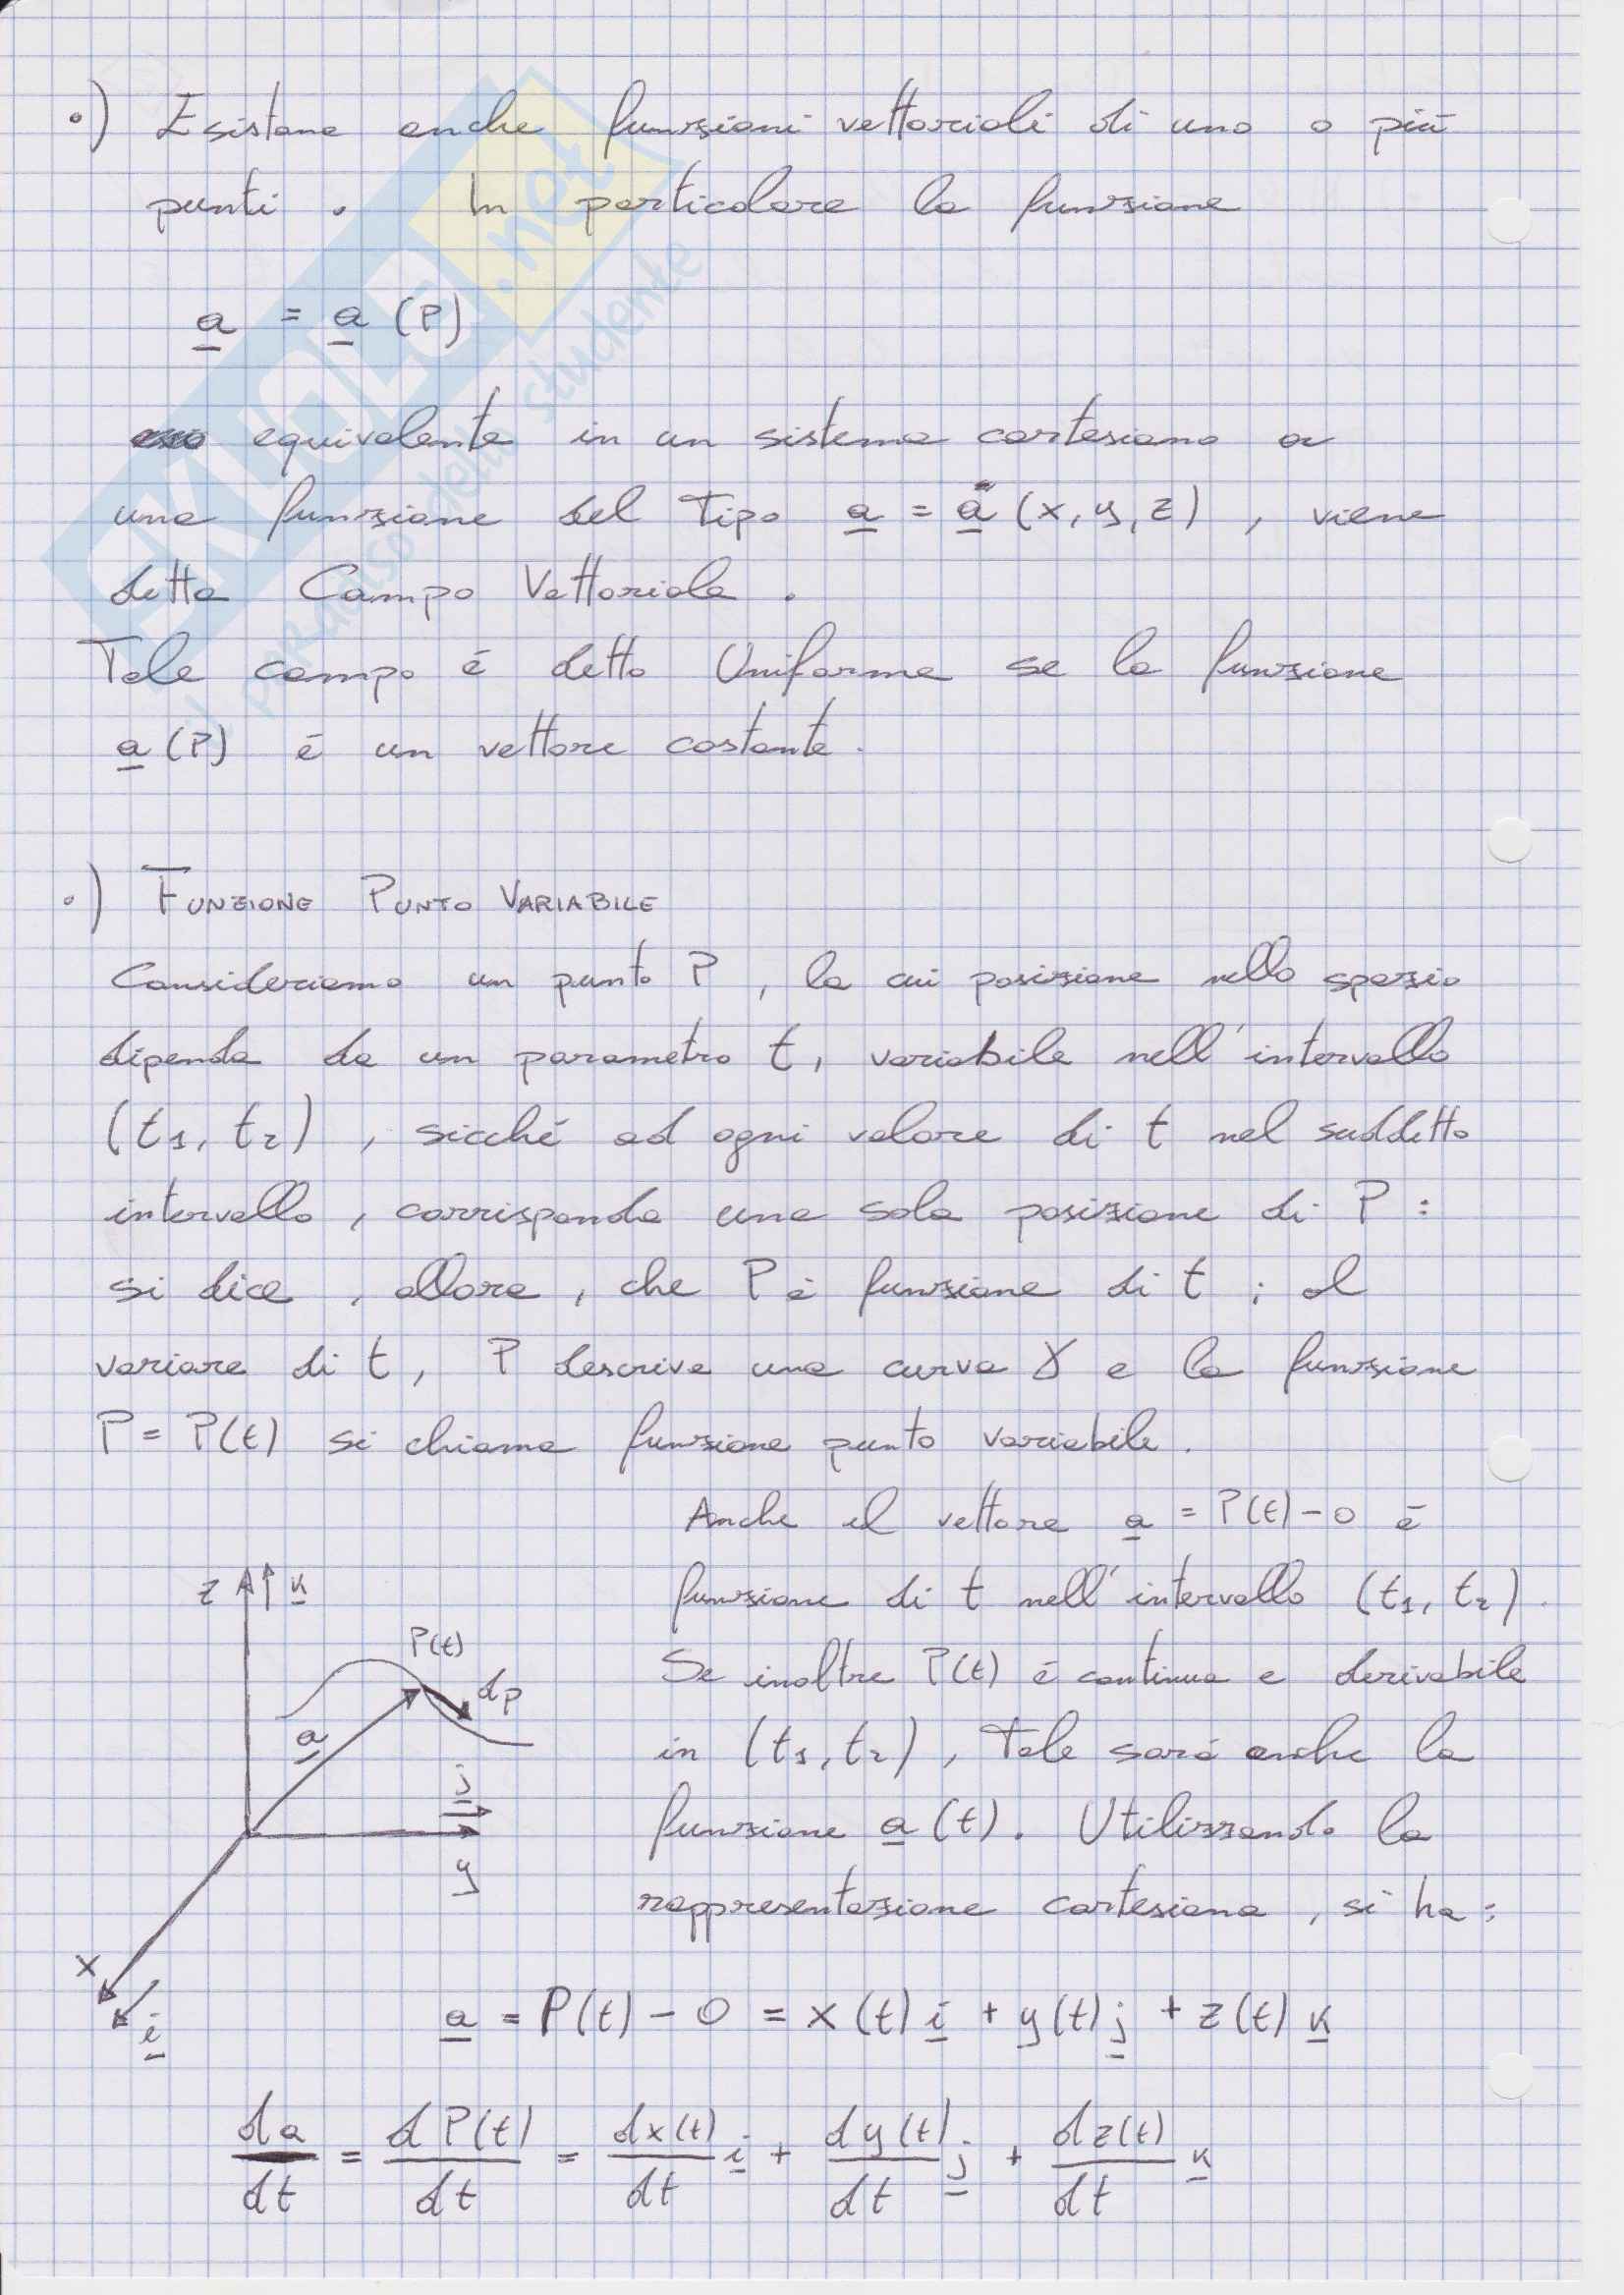 •) Esistono anche funzioni vettoriali di uno o più
punti. In particolare la funzione
a = a (P)
equivalente in un sistema cartesiano a
una funzione del tipo a = a (x, y, z), viene
detta Campo Vettoriale.
Tale campo é detto Uniforme se la funzione
a (P) é un vettore costante.
•) FUNZIONE PUNTO VARIABILE
Consideriamo un punto P, la cui posizione nello spazio
dipenda da un parametro t, variabile nell'intervallo
(t1, t2), sicché ad ogni valore di t nel suddetto
intervallo, corrisponda una sola posizione di P:
si dice, allora, che P è funzione di t; al
variare di t, P descrive una curva γ e la funzione
P = P(t) si chiama funzione punto variabile.
Anche il vettore a = P(t) - O é
funzione di t nell'intervallo (t1, t2).
Se inoltre P(t) é continua e derivabile
in (t1, t2), Tale sará anche la
funzione a (t). Utilizzando la
rappresentazione cartesiana, si ha:
z k
P(t)
dp
a
j
y
x
i
a = P(t) - O = x(t) i + y(t) j + z(t) k
da/dt = dP(t)/dt = dx(t)/dt i + dy(t)/dt j + dz(t)/dt k
SKUOLA.net
il paradiso dello studente